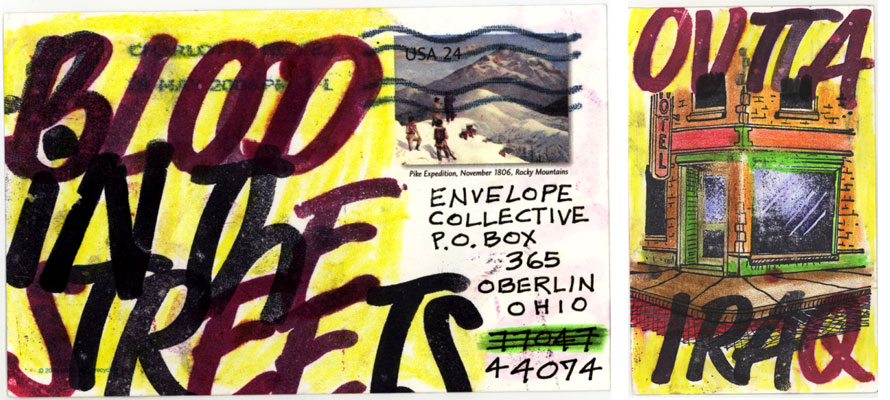 BLOOD
IN ThE
STREETS
USA 24
Pike Expedition, November 1806, Rocky Mountains
ENVELOPE
COLLECTIVE
P.O. BOX
365
OBERLIN
OHIO
77047
44074
OUTTA
OTEL
IRAQ